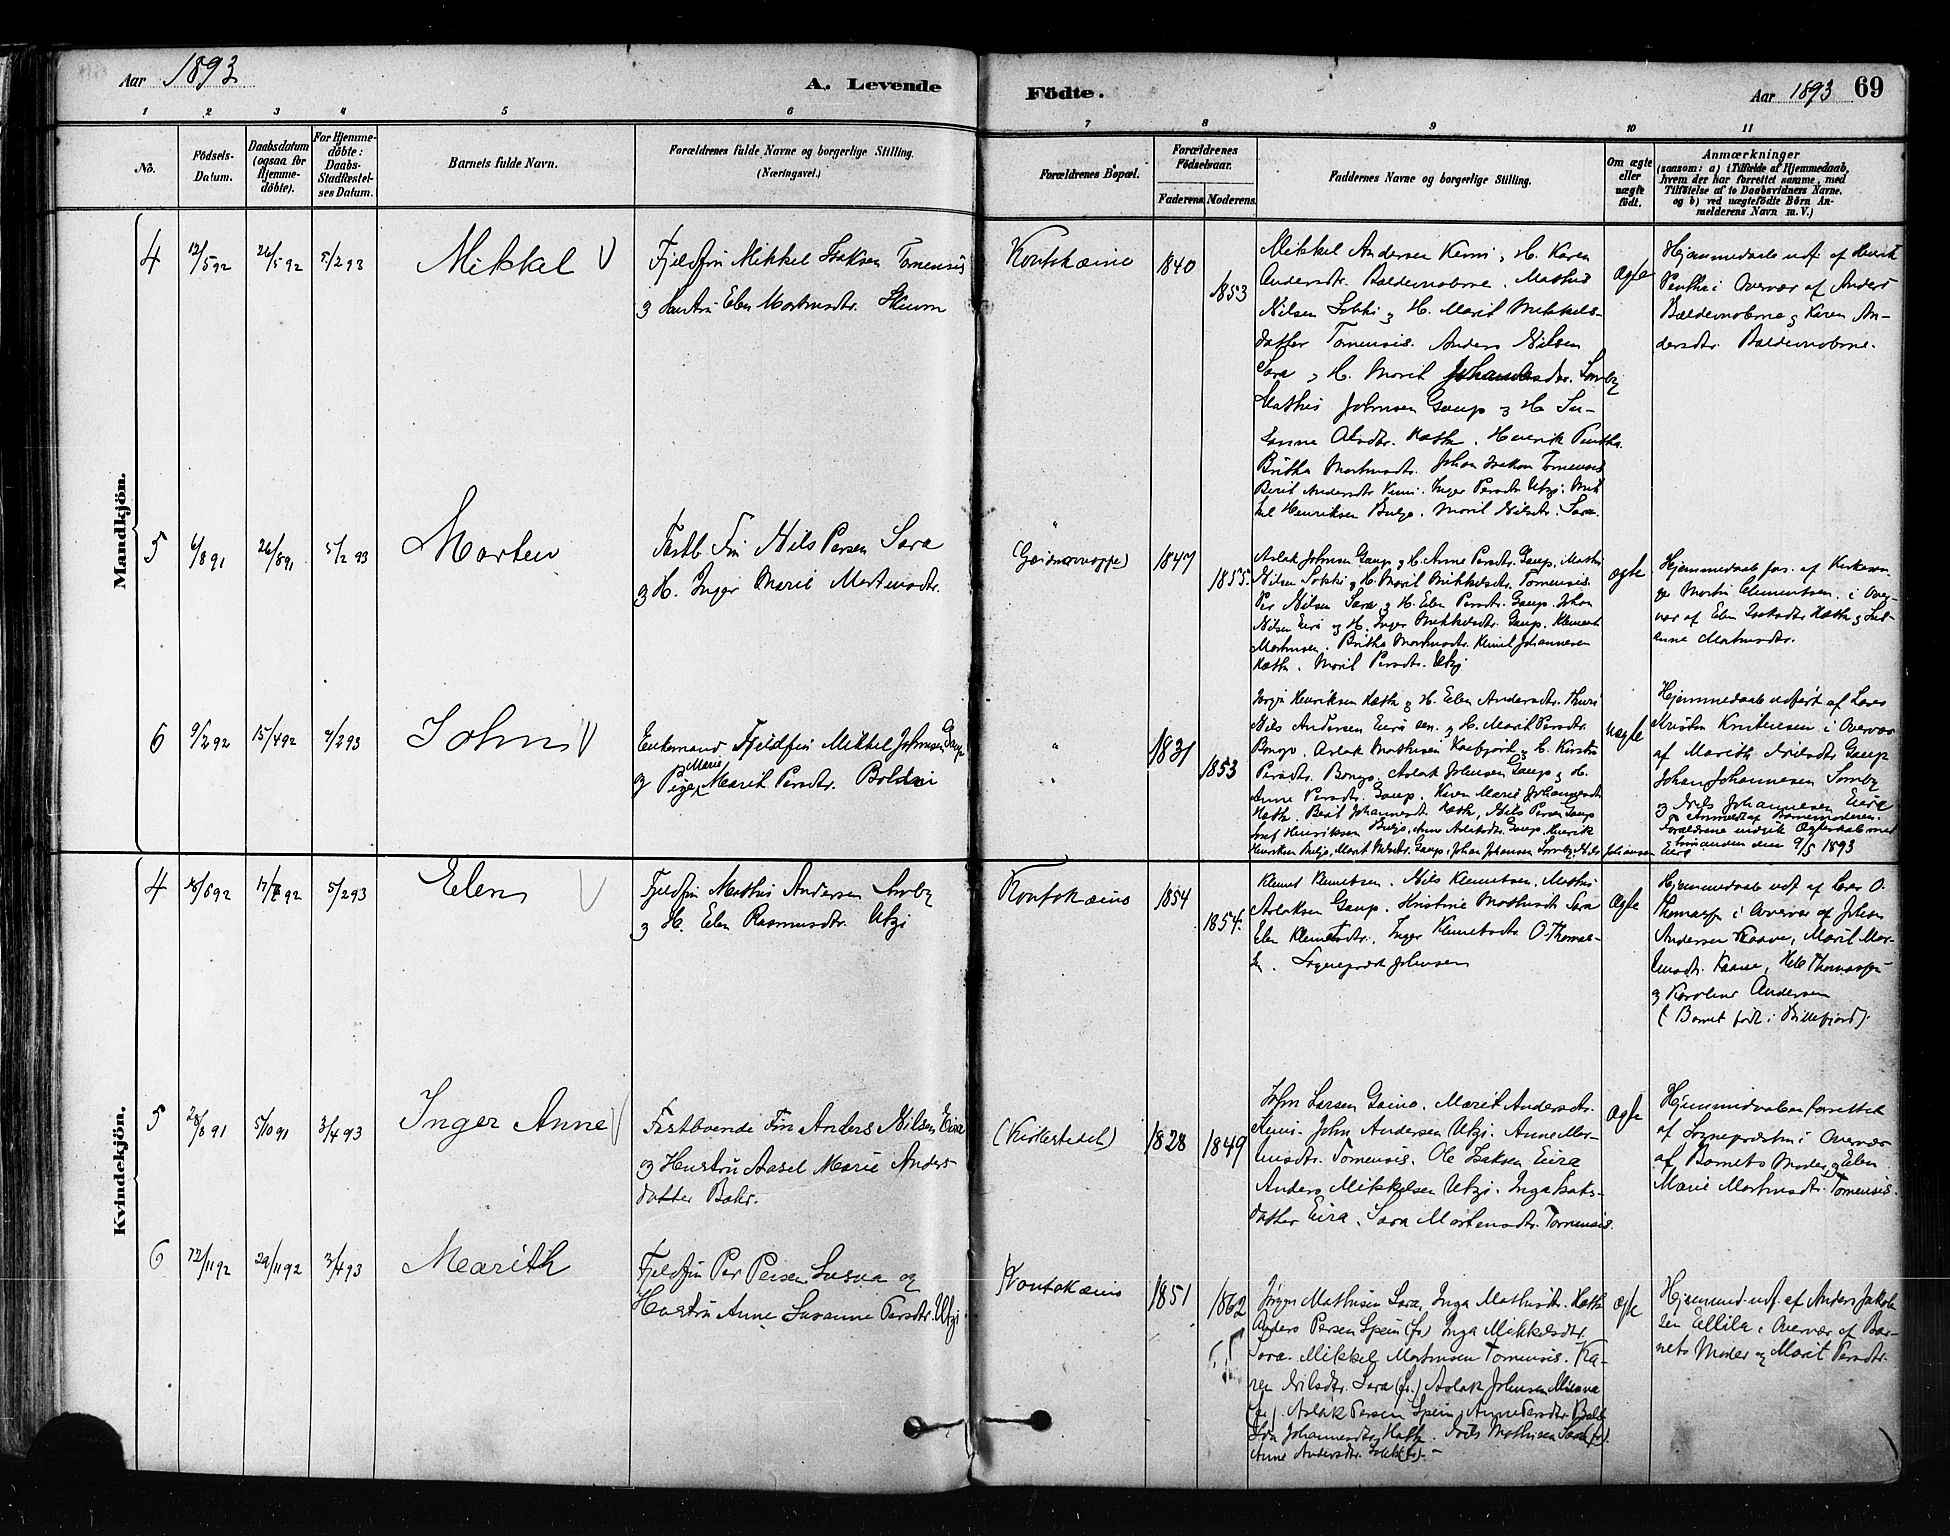 Aar 1893
A. Levende
Födte.
Aar 1893 69
1 2 3 4 5 6 7 8 9 10 11
No.
Födsels-
Datum.
Daabsdatum
(ogsaa for
Hjemme-
døbte).
For Hjemme-
døbte:
Daabs-
Stadfæstel-
ses Datum.
Barnets fulde Navn.
Forældrenes fulde Navne og borgerlige Stilling.
(Næringsvei.)
Forældrenes Bopæl.
Forældrenes
Födselsaar.
Faderens Moderens
Faddernes Navne og borgerlige Stilling.
Om ægte
eller
uægte
født.
Anmærkninger
(saasom: a) i Tilfælde af Hjemmedaab,
hvem der har forrettet samme, med
Tilföielse af to Daabsvidners Navne,
og b) ved uægtefödte Börn An-
melderens Navn m. V.)
Mandkjön.
4 12/5 92 26/5 92 5/2 93
Mikkel
Fjeldfin Mikkel Isaksen Tornensis
og Hustru Elen Mortensdtr.
Koutokæino
1840
1853
Mikkel Andersen Kemi og H. Karen
Andersdtr. Mathis
Nilsen Lokki og H. Marit Mikkels-
datter Tornensis. Anders Nilsen
Sara og H. Marit Johannesdtr. Somby
Mathis Johnsen Gaup og H. Su-
sanne Olsdtr. Hætta. Henrik Pentha.
Britha Mortensdtr. Johan Isaksen Tornensis
Berit Andersdtr. Kemi. Inger Persdtr. Utzi. Mik
kel Henriksen Buljo. Marit Nilsdtr. Sara.
Ægte
Hjemmedaab udf. af Henrik
Pentha i Overvær af Anders
og Karen An-
dersdtr.
5 6/8 91 26/8 91 5/2 93
Morten
Fastb. Fin Nils Persen Sara
og H. Inger Marie Mortensdtr.
"
1847
1855.
Aslak Johnsen Gaup og H. Anne Persdtr. Gaup. Mathis
Nilsen Lokki og H. Marit Mikkelsdtr. Tornensis.
Per Nilsen Sara og H. Elen Persdtr. Gaup. Johan
Nilsen Eira og H. Inger Mikkelsdtr. Gaup. Klemet
Mortensen. Britha Mortensdtr. Klemet Johannesen
Hætta. Marit Persdtr. Utzi
Ægte
Hjemmedaab for. af Kirkesan-
ger Martin Clementsen. i Over-
vær af Elen Isaksdtr. Hætta og Sus-
anne Mortensdtr.
6 9/2 92 15/4 92 4/2 93
John
Enkemand Fjeldfin Mikkel Johnsen Gaup
og Pige Marie Marit Persdtr.
"
"
1831
1853
Henriksen Hætta og H. Elen Andersdtr.
Nils Andersen Eira sen. og H. Marit Persdtr.
Bongo. Aslak Mathisen og H. Kirsten
Persdtr. Bongo. Aslak Johnsen Gaup og H.
Anne Persdtr. Gaup. Karen Marie Johannesdtr.
Hætta. Berit Johannesdtr. Hætta, Nils Persen Gaup
Josef Henriksen Buljo, Anne Aslaksdtr. Gaup. Henrik
Henriksen Buljo, Marit Nilsdtr. Gaup, Johan Johansen Somby, Nils Johansen Eira
uægte
Hjemmedaab udført af Lars
Kristian Knutsen i Overvær
af Marith Nilsdtr Gaup
Johan Johannesen Somby
og Nils Johannesen Eira
Anmeldt af Barnemoderen.
Forældrene indgik Ægteskab med
hinanden den 9/5 1893
Kvindekjön.
4 18/6 92 92 5/2 93
Elen
Fjeldfin Mathis Andersen Somby
og H. Elen Rasmusdtr. Utzi
Koutokæino
1854
1854.
Klemet Klemetsen. Nils Klemetsen, Mathis
Aslaksen Gaup. Kristine Mathisdtr. Sara
Elen Klemetsdtr., Inger Klemetsdtr. O. Thomas-
sen. Sognepræst Johnsen
Ægte
Hjemmedaab udf. af Lærer O.
Thomassen i Overvær af Johan
Andersen Kaaven, Marit Mor-
tensdtr. Kaaven, Thomassen
og Karoline Andersen
(Barnet født i Billefjord).
5 28/8 91 5/10 91 3/4 93
Inger Anne
Fastboende Fin Anders Nilsen Eira
og Hustru Aasel Marie Anders-
datter Bahr.
(Kirkestedet)
1828
1849
John Larsen Gaino. Marit Andersdtr.
Kemi. John Andersen Utzi. Anne Mor-
tensdtr. Tornensis. Ole Isaksen Eira
Anders Mikkelsen Utzi. Inga Isaks-
datter Eira. Sara Mortensdtr. Tornensis.
Ægte
Hjemmedaaben forrettet
af Sognepræsten i Overvær
af Barnets Moder og Elen
Marie Mortensdtr. Tornensis.
6 12/11 92 29/11 92 3/4 93
Marith
Fjeldfin Per Persen og
Hustru Anne Susanne Persdtr. Utzi
Koutokæino
1851
1862
Jørgen Mathisen Sara, Inga Mathisdtr. Hætta
Anders Persen Spein (fr) Inga Mikkelsdtr.
Sara. Mikkel Mortensen Tornensis. Ka-
ren Nilsdtr. Sara (fr.) Aslak Johnsen
(fr.). Aslak Persen Spein, Anne Persdtr.
Johannesdtr. Hætta. Nils Mathisen Sara (fr).
Anne Andersdtr. (fr).-
Ægte
Hjemmed. udf. af Anders Jakob-
sen i Overvær af Bar-
nets Moder og Marit Persdtr.